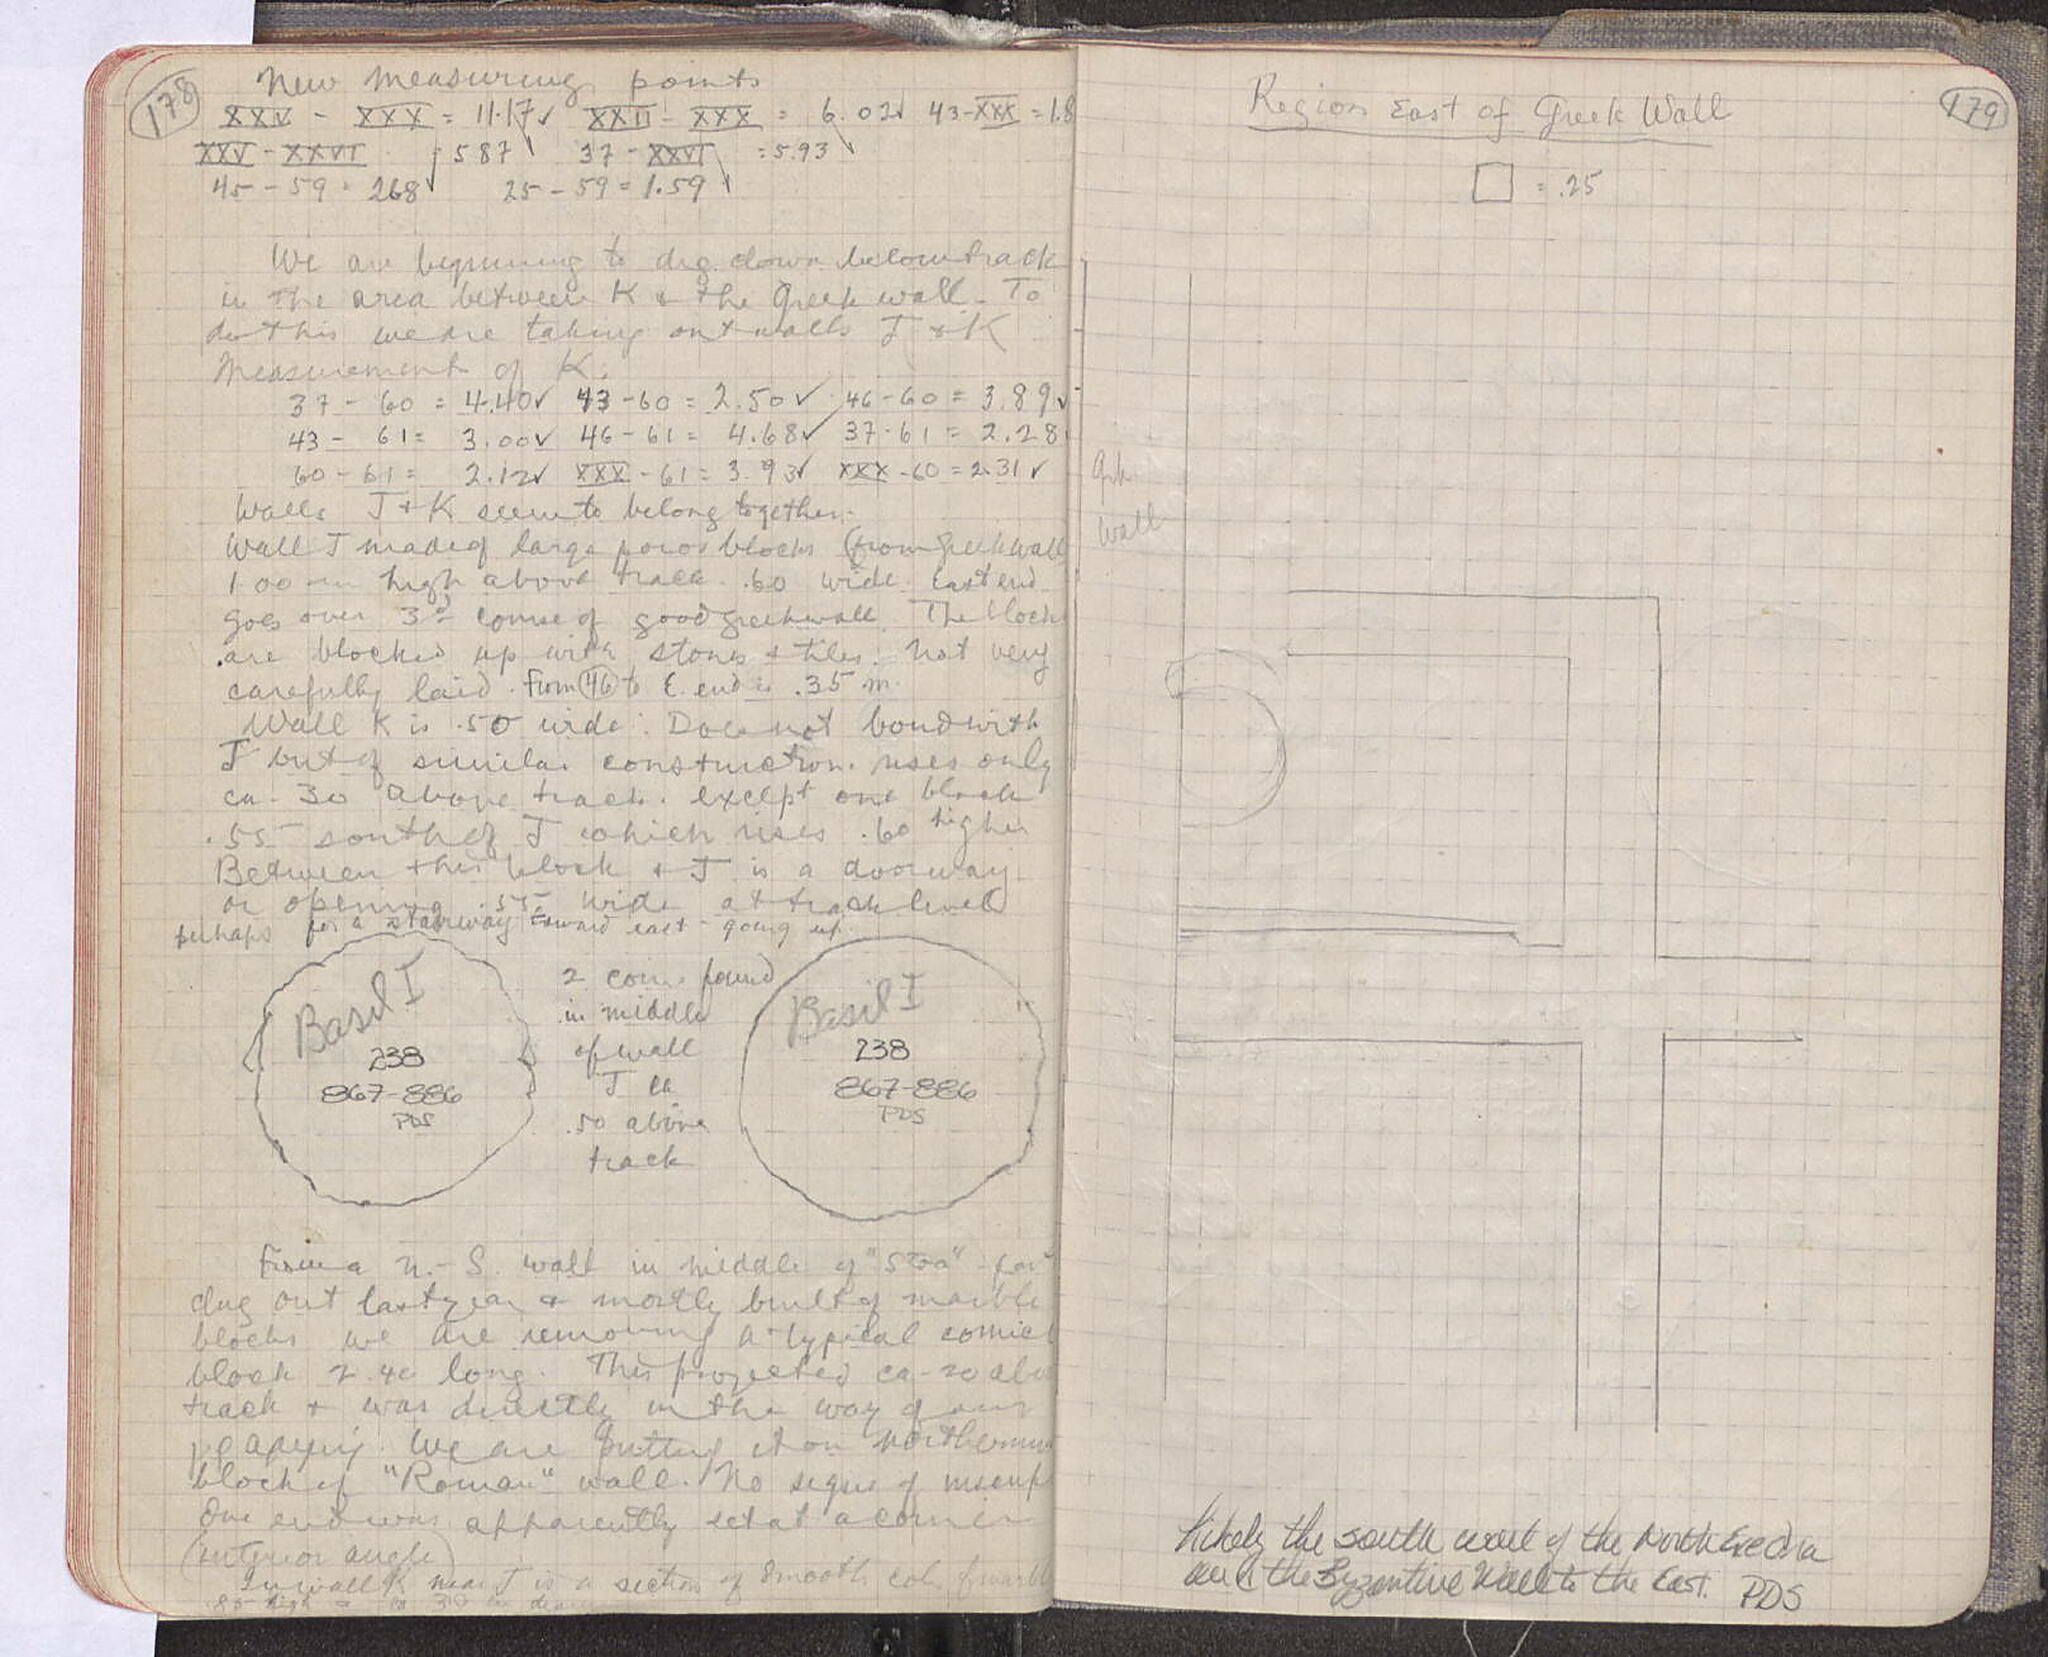 178
New measuring points
XXV - XXX = 11.17✓ XXII - XXX = 6.02✓ 43-XXX = 1.8
XXV - XXVI = 587 37 - XXVI = 5.93
45 - 59 = 268 25 - 59 = 1.59
We are beginning to dig down below track
in the area between K & the Greek wall. To
do this we are taking out walls J & K
Measurement of K:
37 - 60 = 4.40✓ 43 - 60 = 2.50✓ 46 - 60 = 3.89✓
43 - 61 = 3.00✓ 46 - 61 = 4.68✓ 37 - 61 = 2.28
60 - 61 = 2.12✓ XXX - 61 = 3.93✓ XXX - 60 = 2.31✓
Walls J & K seem to belong together.
Wall J made of large poros blocks (from Greek wall
1.00 m high above track .60 wide. East end
goes over 3rd course of good greek wall. The block
are blocked up with stones & tiles. Not very
carefully laid. From 46 to E. end is .35 m.
Wall K is .50 wide. Does not bond with
J but of similar construction. rises only
ca. 30 above track. except one block
.55 south of J which rises .60 higher
Between this block & J is a doorway
or opening .55 wide at track level
perhaps for a stairway toward east - going up.
Basil I
238
867-886
PDS
2 coins found
in middle
of wall
J ca
.50 above
track
Basil I
238
867-886
PDS
From a N.-S. wall in middle of "Stoa"
dug out last year & mostly built of marble
blocks we are removing a typical cornice
block 2.40 long. This projected ca .20 abo
track & was directly in the way of our
We are putting it on northernmo
block of "Roman" wall. No signs of
One end was apparently set at a corner
(interior angle)
In wall K near J is a section of smooth col. (marbl
.85 high
179
Region East of Greek Wall
= .25
Gk
Wall
Likely the south wall of the North Exedra
and the Byzantine Wall to the East. PDS